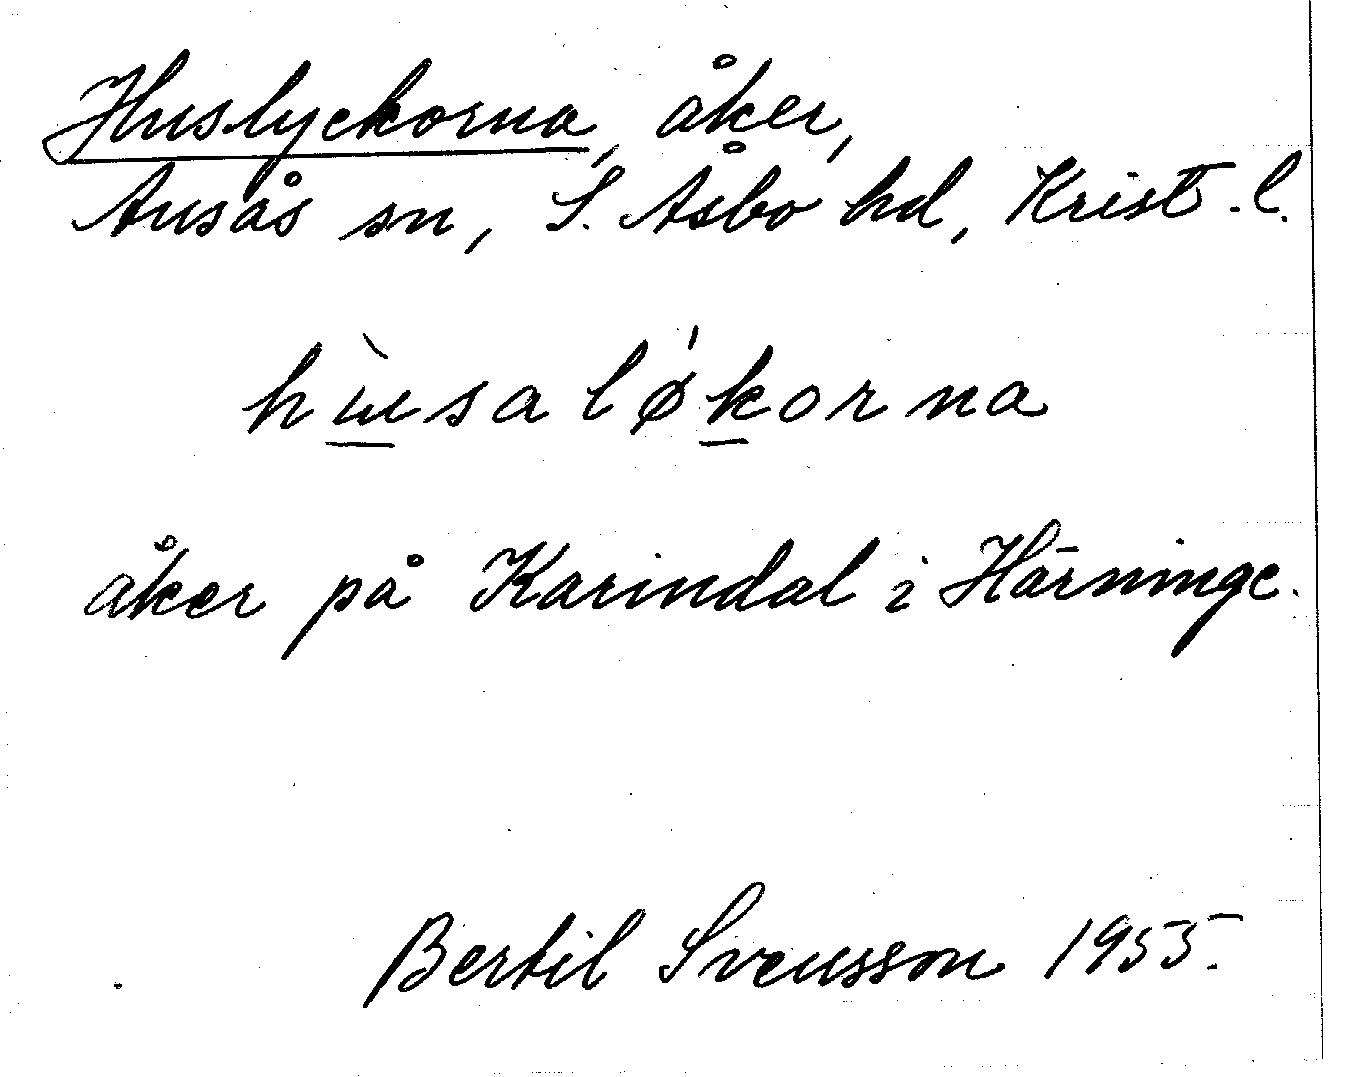 Huslyckorna, åker,
Ausås sn, S. Åsbo hd, Krist. l.
hùːsaløˈkorna
åker på Karindal i Härninge.
Bertil Svensson 1955.